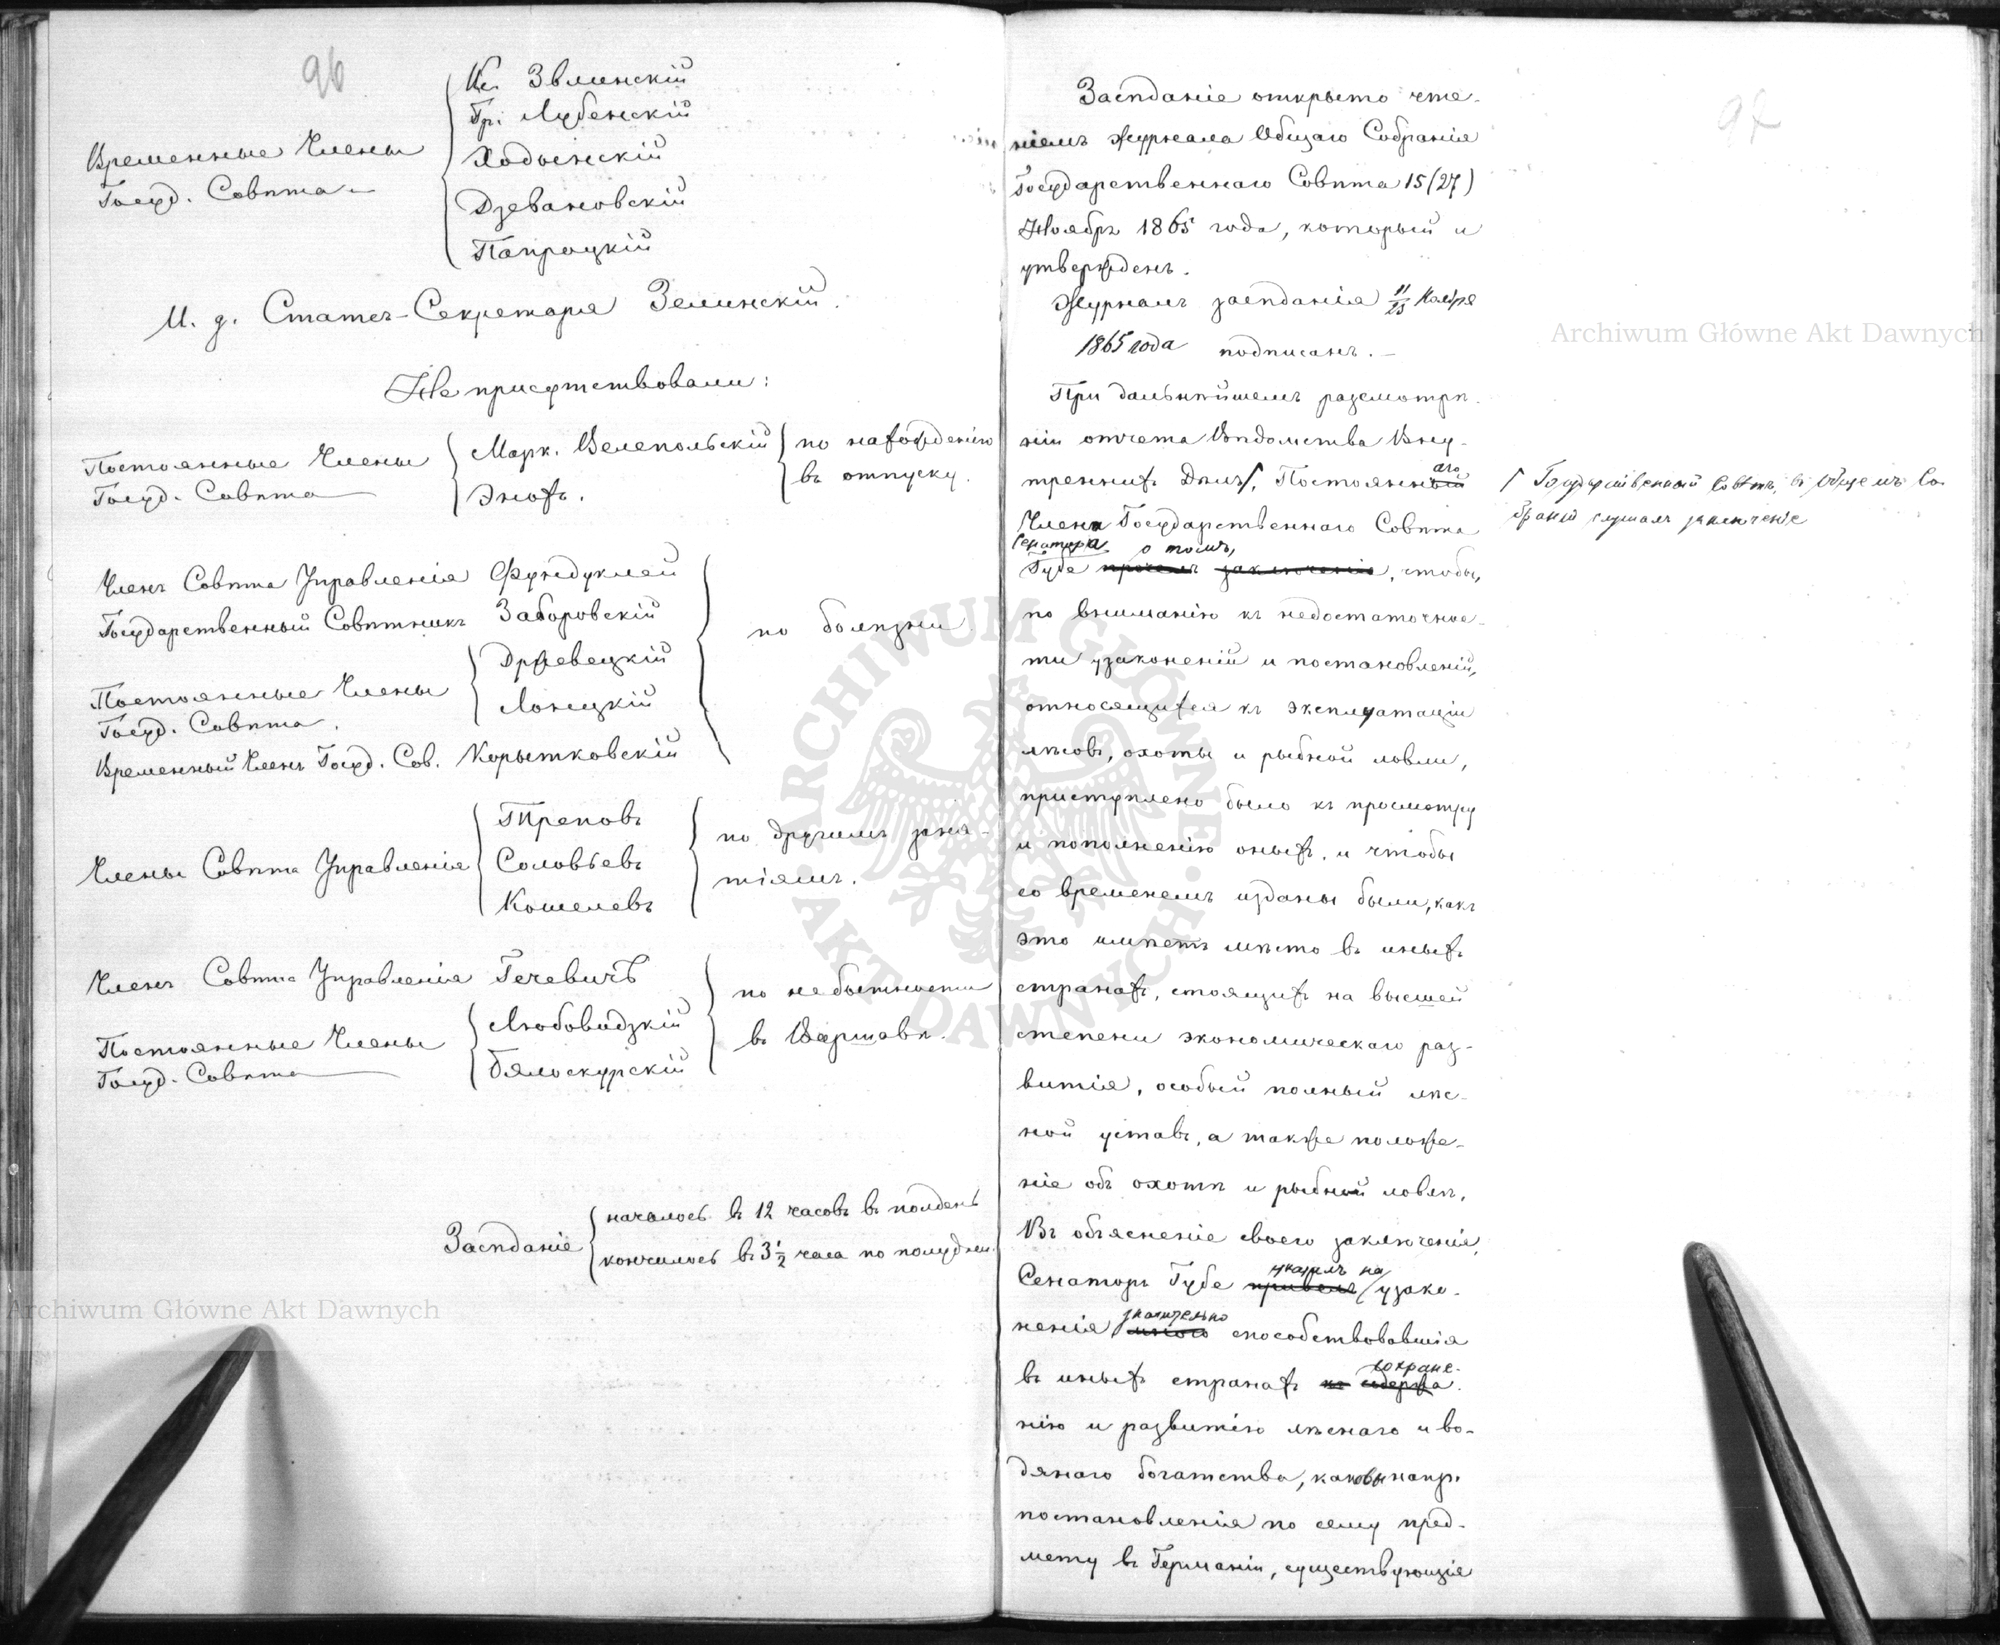 96
Кс. Звлинскій
Гр. Лубенскій
Временные Члены
Госуд. Совѣта
Ходынскій
Дзевановскій
Папроцкій
И. д. Статсъ-Секретаря Зелинскій.
Не присутствовали:
Постоянные Члены
Госуд. Совѣта
Марк. Велепольскій
Энохъ.
по нахожденію
въ отпуску.
Членъ Совѣта Управленія Фундуклей
Государственный Совѣтникъ Заборовскій
Постоянные Члены
Госуд. Совѣта.
Држевецкій
Лонцкій
Временный Членъ Госуд. Сов. Корытковскій
по болѣзни.
Члены Совѣта Управленія
Треповъ
Соловьевъ
Кошелевъ
по другимъ заня-
тіямъ.
Членъ Совѣта Управленія Гечевичъ
Постоянные Члены
Госуд. Совѣта
Любовидзкій
Бялоскурскій
по небытности
въ Варшавѣ.
Засѣданіе
началось въ 12 часовъ въ полдень
кончилось въ 3 1/2 часа по полудни.
97
Засѣданіе открыто чте-
ніемъ журнала Общаго Собранія
Государственнаго Совѣта 15 (27)
Ноября 1865 года, который и
утвержденъ.
Журналъ засѣданія 11/23 Ноября
1865 года подписанъ. —
При дальнѣйшемъ разсмотрѣ-
ніи отчета Вѣдомства Вну-
треннихъ Дѣлъ, Постояннаго
Государственный Совѣтъ, въ Общемъ Со-
браніи слушалъ заключеніе
Члена Государственнаго Совѣта
Сенатора о томъ,
Губе прочелъ заключеніе, чтобы,
по вниманію къ недостаточнос-
ти узаконеній и постановленій,
относящихся къ эксплуатаціи
лѣсовъ, охоты и рыбной ловли,
приступлено было къ просмотру
и пополненію оныхъ, и чтобы
со временемъ изданы были, какъ
это имѣетъ мѣсто въ иныхъ
странахъ, стоящихъ на высшей
степени экономическаго раз-
витія, особый полный лѣс-
ной уставъ, а также положе-
ніе объ охотѣ и рыбной ловлѣ.
Въ объясненіе своего заключенія,
указалъ на
Сенаторъ Губе привелъ узако-
значительно
ненія много способствовавшія
сохране-
въ иныхъ странахъ къ содержа-
нію и развитію лѣснаго и во-
дянаго богатства, каковы напр.
постановленія по сему пред-
мету въ Германіи, существующія
Archiwum Główne Akt Dawnych
Archiwum Główne Akt Dawnych
ARCHIWUM GŁÓWNE
AKT DAWNYCH